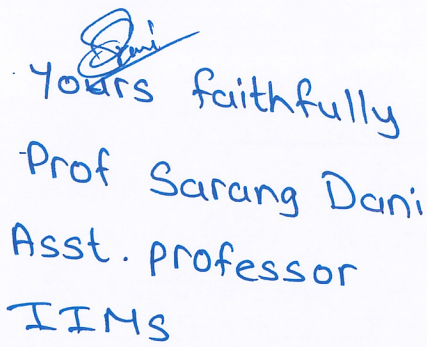 Yours faithfully
Prof Sarang Dani
Asst. professor
IIMS